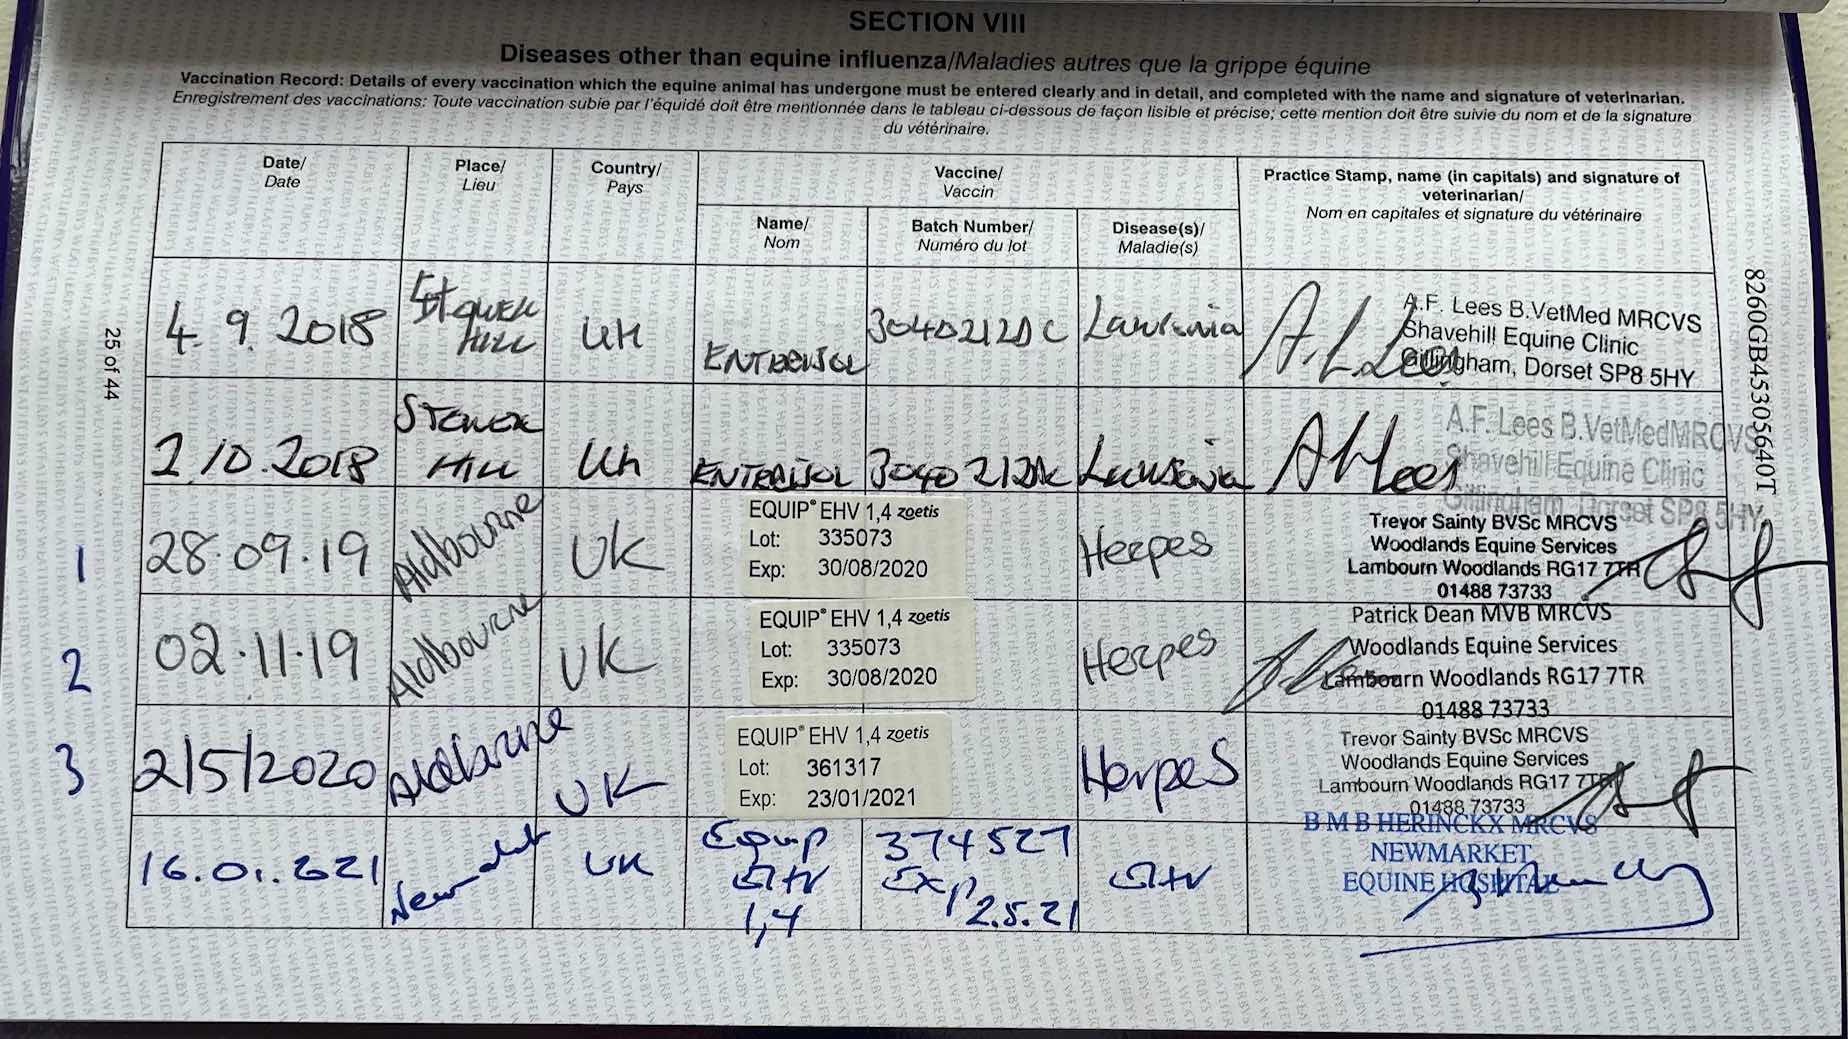 SECTION VIII
Diseases other than equine influenza/Maladies autres que la grippe équine
Vaccination Record: Details of every vaccination which the equine animal has undergone must be entered clearly and in detail, and completed with the name and signature of veterinarian.
Enregistrement des vaccinations: Toute vaccination subie par l'équidé doit être mentionnée dans le tableau ci-dessous de façon lisible et précise; cette mention doit être suivie du nom et de la signature
du vétérinaire.
Date/
Date
Place/
Lieu
Country/
Pays
Vaccine/
Vaccin
Name/
Nom
Batch Number/
Numéro du lot
Disease(s)/
Maladie(s)
Practice Stamp, name (in capitals) and signature of
veterinarian/
Nom en capitales et signature du vétérinaire
4.9.2018
HILL
UK
ENTERISOL
Lawsonia
A.F. Lees B.VetMed MRCVS
Shavehill Equine Clinic
Gillingham, Dorset SP8 5HY
2.10.2018
HILL
UK
ENTERISOL
Lawsonia
A.F. Lees B.VetMedMRCVS
Shavehill Equine Clinic
Gillingham, Dorset SP8 5HY
1
28.09.19
Aldbourne
UK
EQUIP® EHV 1,4 zoetis
Lot: 335073
Exp: 30/08/2020
Herpes
Trevor Sainty BVSc MRCVS
Woodlands Equine Services
Lambourn Woodlands RG17 7TR
01488 73733
2
02.11.19
Aldbourne
UK
EQUIP® EHV 1,4 zoetis
Lot: 335073
Exp: 30/08/2020
Herpes
Patrick Dean MVB MRCVS
Woodlands Equine Services
Lambourn Woodlands RG17 7TR
01488 73733
3
2/5/2020
Aldbourne
UK
EQUIP® EHV 1,4 zoetis
Lot: 361317
Exp: 23/01/2021
Herpes
Trevor Sainty BVSc MRCVS
Woodlands Equine Services
Lambourn Woodlands RG17 7TR
01488 73733
16.01.2021
Newmarket
UK
Equip
EHV
1,4
374527
Exp
2.5.21
EHV
B M B HERINCKX MRCVS
NEWMARKET
EQUINE HOSPITAL
25 of 44
8260GB45305640T